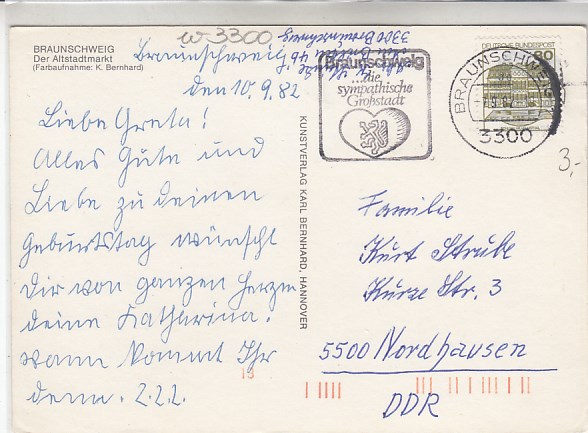 w-3300
BRAUNSCHWEIG
Der Altstadtmarkt
(Farbaufnahme: K. Bernhard)
Braunschweig
den 10.9.82
Liebe Greta!
Alles Gute und
Liebe zu deinen
Geburtstag wünscht
Dir von ganzen Herzen
deine Katharina.
wann kommt Ihr
denn. 2.2.2.
13
KUNSTVERLAG KARL BERNHARD, HANNOVER
3300 Braunschweig
Braunschweig
...die
sympathische
Großstadt
DEUTSCHE BUNDESPOST
BRAUNSCHWEIG
9.82
3300
3,-
Familie
Kurt Strube
Kurze Str. 3
5500 Nordhausen
DDR